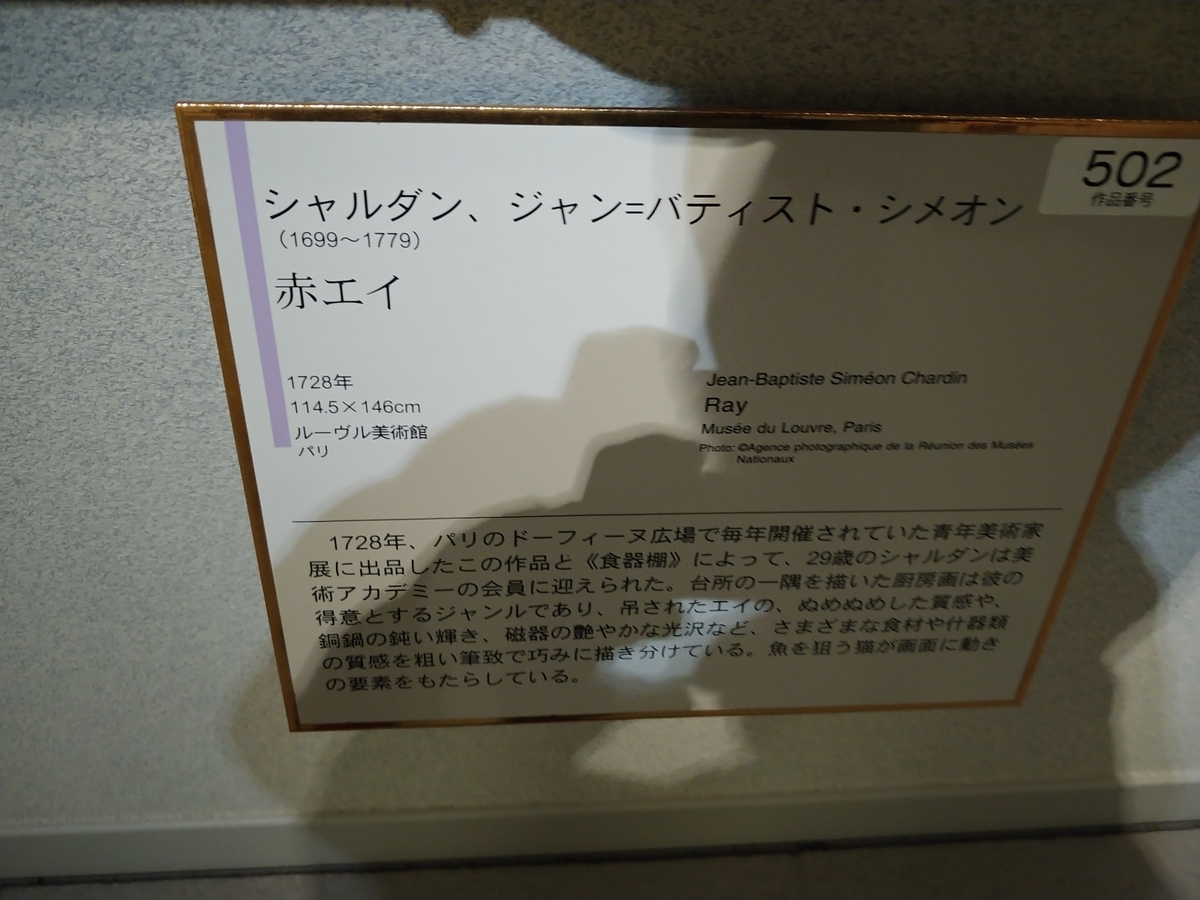 502
作品番号
シャルダン、ジャン=バティスト・シメオン
（1699〜1779）
赤エイ
1728年
114.5×146cm
ルーヴル美術館
パリ
Jean-Baptiste Siméon Chardin
Ray
Musée du Louvre, Paris
Photo: ©Agence photographique de la Réunion des Musées
Nationaux
1728年、パリのドーフィーヌ広場で毎年開催されていた青年美術家
展に出品したこの作品と《食器棚》によって、29歳のシャルダンは美
術アカデミーの会員に迎えられた。台所の一隅を描いた厨房画は彼の
得意とするジャンルであり、吊されたエイの、ぬめぬめした質感や、
銅鍋の鈍い輝き、磁器の艶やかな光沢など、さまざまな食材や什器類
の質感を粗い筆致で巧みに描き分けている。魚を狙う猫が画面に動き
の要素をもたらしている。